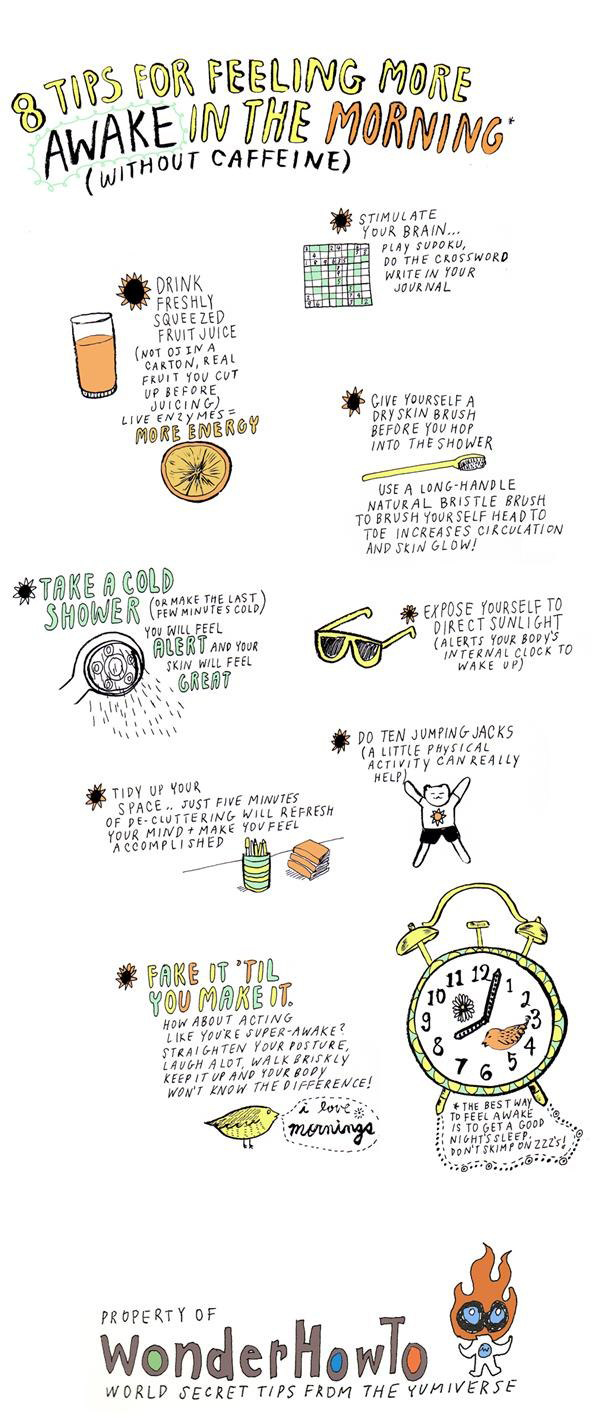 8 TIPS FOR FEELING MORE
AWAKE IN THE MORNING*
(WITHOUT CAFFEINE)
STIMULATE
YOUR BRAIN...
PLAY SUDOKU,
DO THE CROSSWORD
WRITE IN YOUR
JOURNAL
DRINK
FRESHLY
SQUEEZED
FRUIT JUICE
(NOT OJ IN A
CARTON, REAL
FRUIT YOU CUT
UP BEFORE
JUICING)
LIVE ENZYMES =
MORE ENERGY
GIVE YOURSELF A
DRY SKIN BRUSH
BEFORE YOU HOP
INTO THE SHOWER
USE A LONG-HANDLE
NATURAL BRISTLE BRUSH
TO BRUSH YOURSELF HEAD TO
TOE INCREASES CIRCULATION
AND SKIN GLOW!
TAKE A COLD
SHOWER (OR MAKE THE LAST
FEW MINUTES COLD)
YOU WILL FEEL
ALERT AND YOUR
SKIN WILL FEEL
GREAT
EXPOSE YOURSELF TO
DIRECT SUNLIGHT
(ALERTS YOUR BODY'S
INTERNAL CLOCK TO
WAKE UP)
DO TEN JUMPING JACKS
(A LITTLE PHYSICAL
ACTIVITY CAN REALLY
HELP)
TIDY UP YOUR
SPACE.. JUST FIVE MINUTES
OF DE-CLUTTERING WILL REFRESH
YOUR MIND + MAKE YOU FEEL
ACCOMPLISHED
FAKE IT 'TIL
YOU MAKE IT.
HOW ABOUT ACTING
LIKE YOU'RE SUPER-AWAKE?
STRAIGHTEN YOUR POSTURE,
LAUGH A LOT, WALK BRISKLY
KEEP IT UP AND YOUR BODY
WON'T KNOW THE DIFFERENCE!
i love
mornings
12
1
2
3
4
5
6
7
8
9
10
11
* THE BEST WAY
TO FEEL AWAKE
IS TO GET A GOOD
NIGHT'S SLEEP.
DON'T SKIMP ON ZZZ'S!
PROPERTY OF
WonderHowTo
WORLD SECRET TIPS FROM THE YUMIVERSE